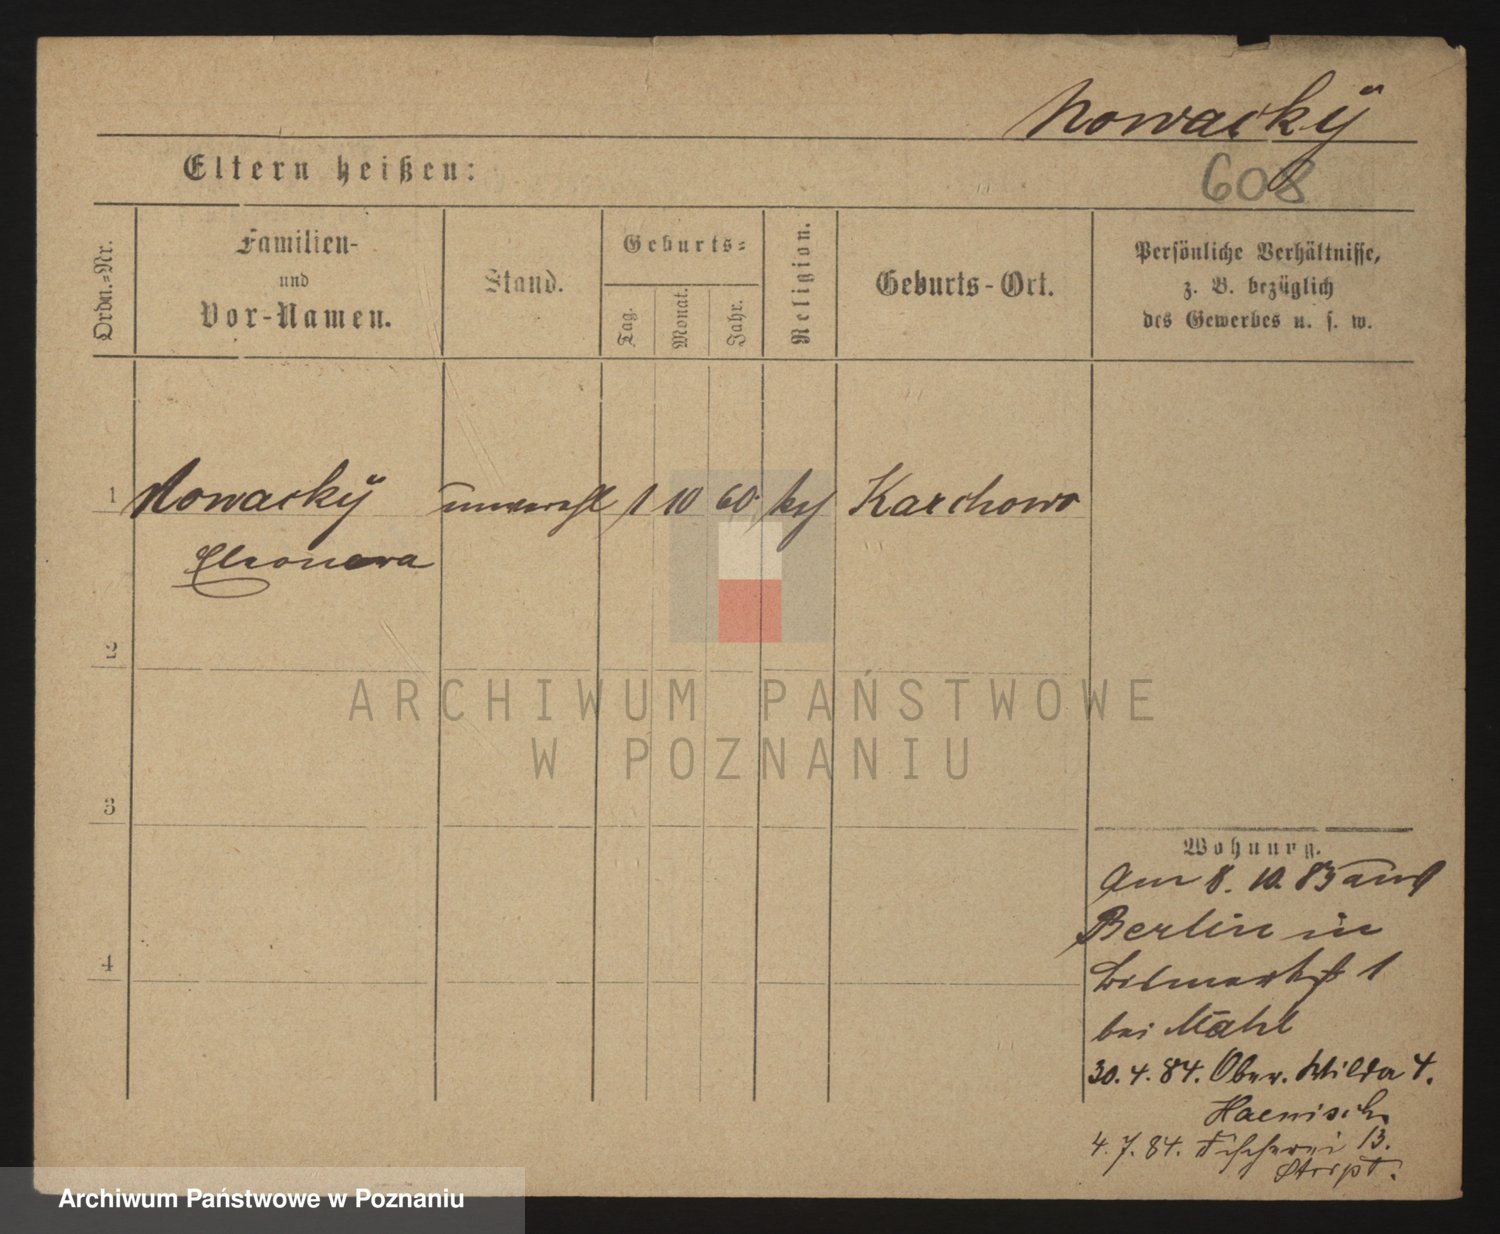 Nowacky
Eltern heißen:
608
Ordn.=Nr.
Familien-
und
Vor-Namen.
Stand.
Geburts=
Tag.
Monat.
Jahr.
Religion.
Geburts-Ort.
Persönliche Verhältnisse,
z. B. bezüglich
des Gewerbes u. s. w.
1 Nowacky unverehl 1 10 60 kath Karchowo
Eleonora
2
ARCHIWUM PAŃSTWOWE
W POZNANIU
3
Wohnung.
Am 8. 10. 83 aus
Berlin in
Bismarkst 1
bei Mahl
4
30. 4. 84. Ober. Wilda 4.
Haenisch
4. 7. 84. Fischerei 13.
Archiwum Państwowe w Poznaniu